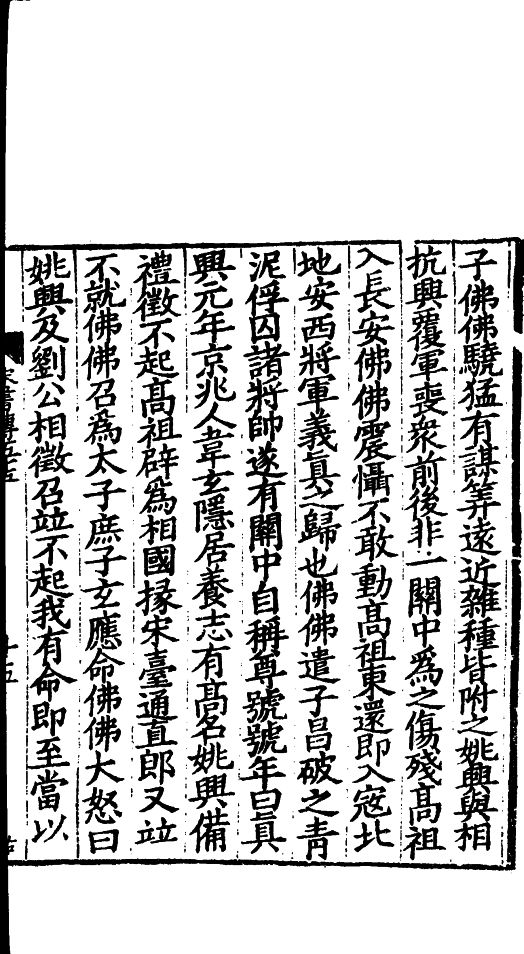 子佛佛驍猛有謀筭遠近雜種皆附之姚興與相
抗興覆軍喪衆前後非一關中爲之傷殘髙祖
入長安佛佛震懾不敢動髙祖東還即入寇北
地安西將軍義真之歸也佛佛遣子昌破之青
泥俘囚諸將帥遂有關中自稱尊號號年曰真
興元年京兆人韋玄隱居養志有髙名姚興備
禮徵不起髙祖辟爲相國掾宋臺通直郎又竝
不就佛佛召爲太子庶子玄應命佛佛大怒曰
姚興及劉公相徵召竝不起我有命即至當以
宋書傳五十五